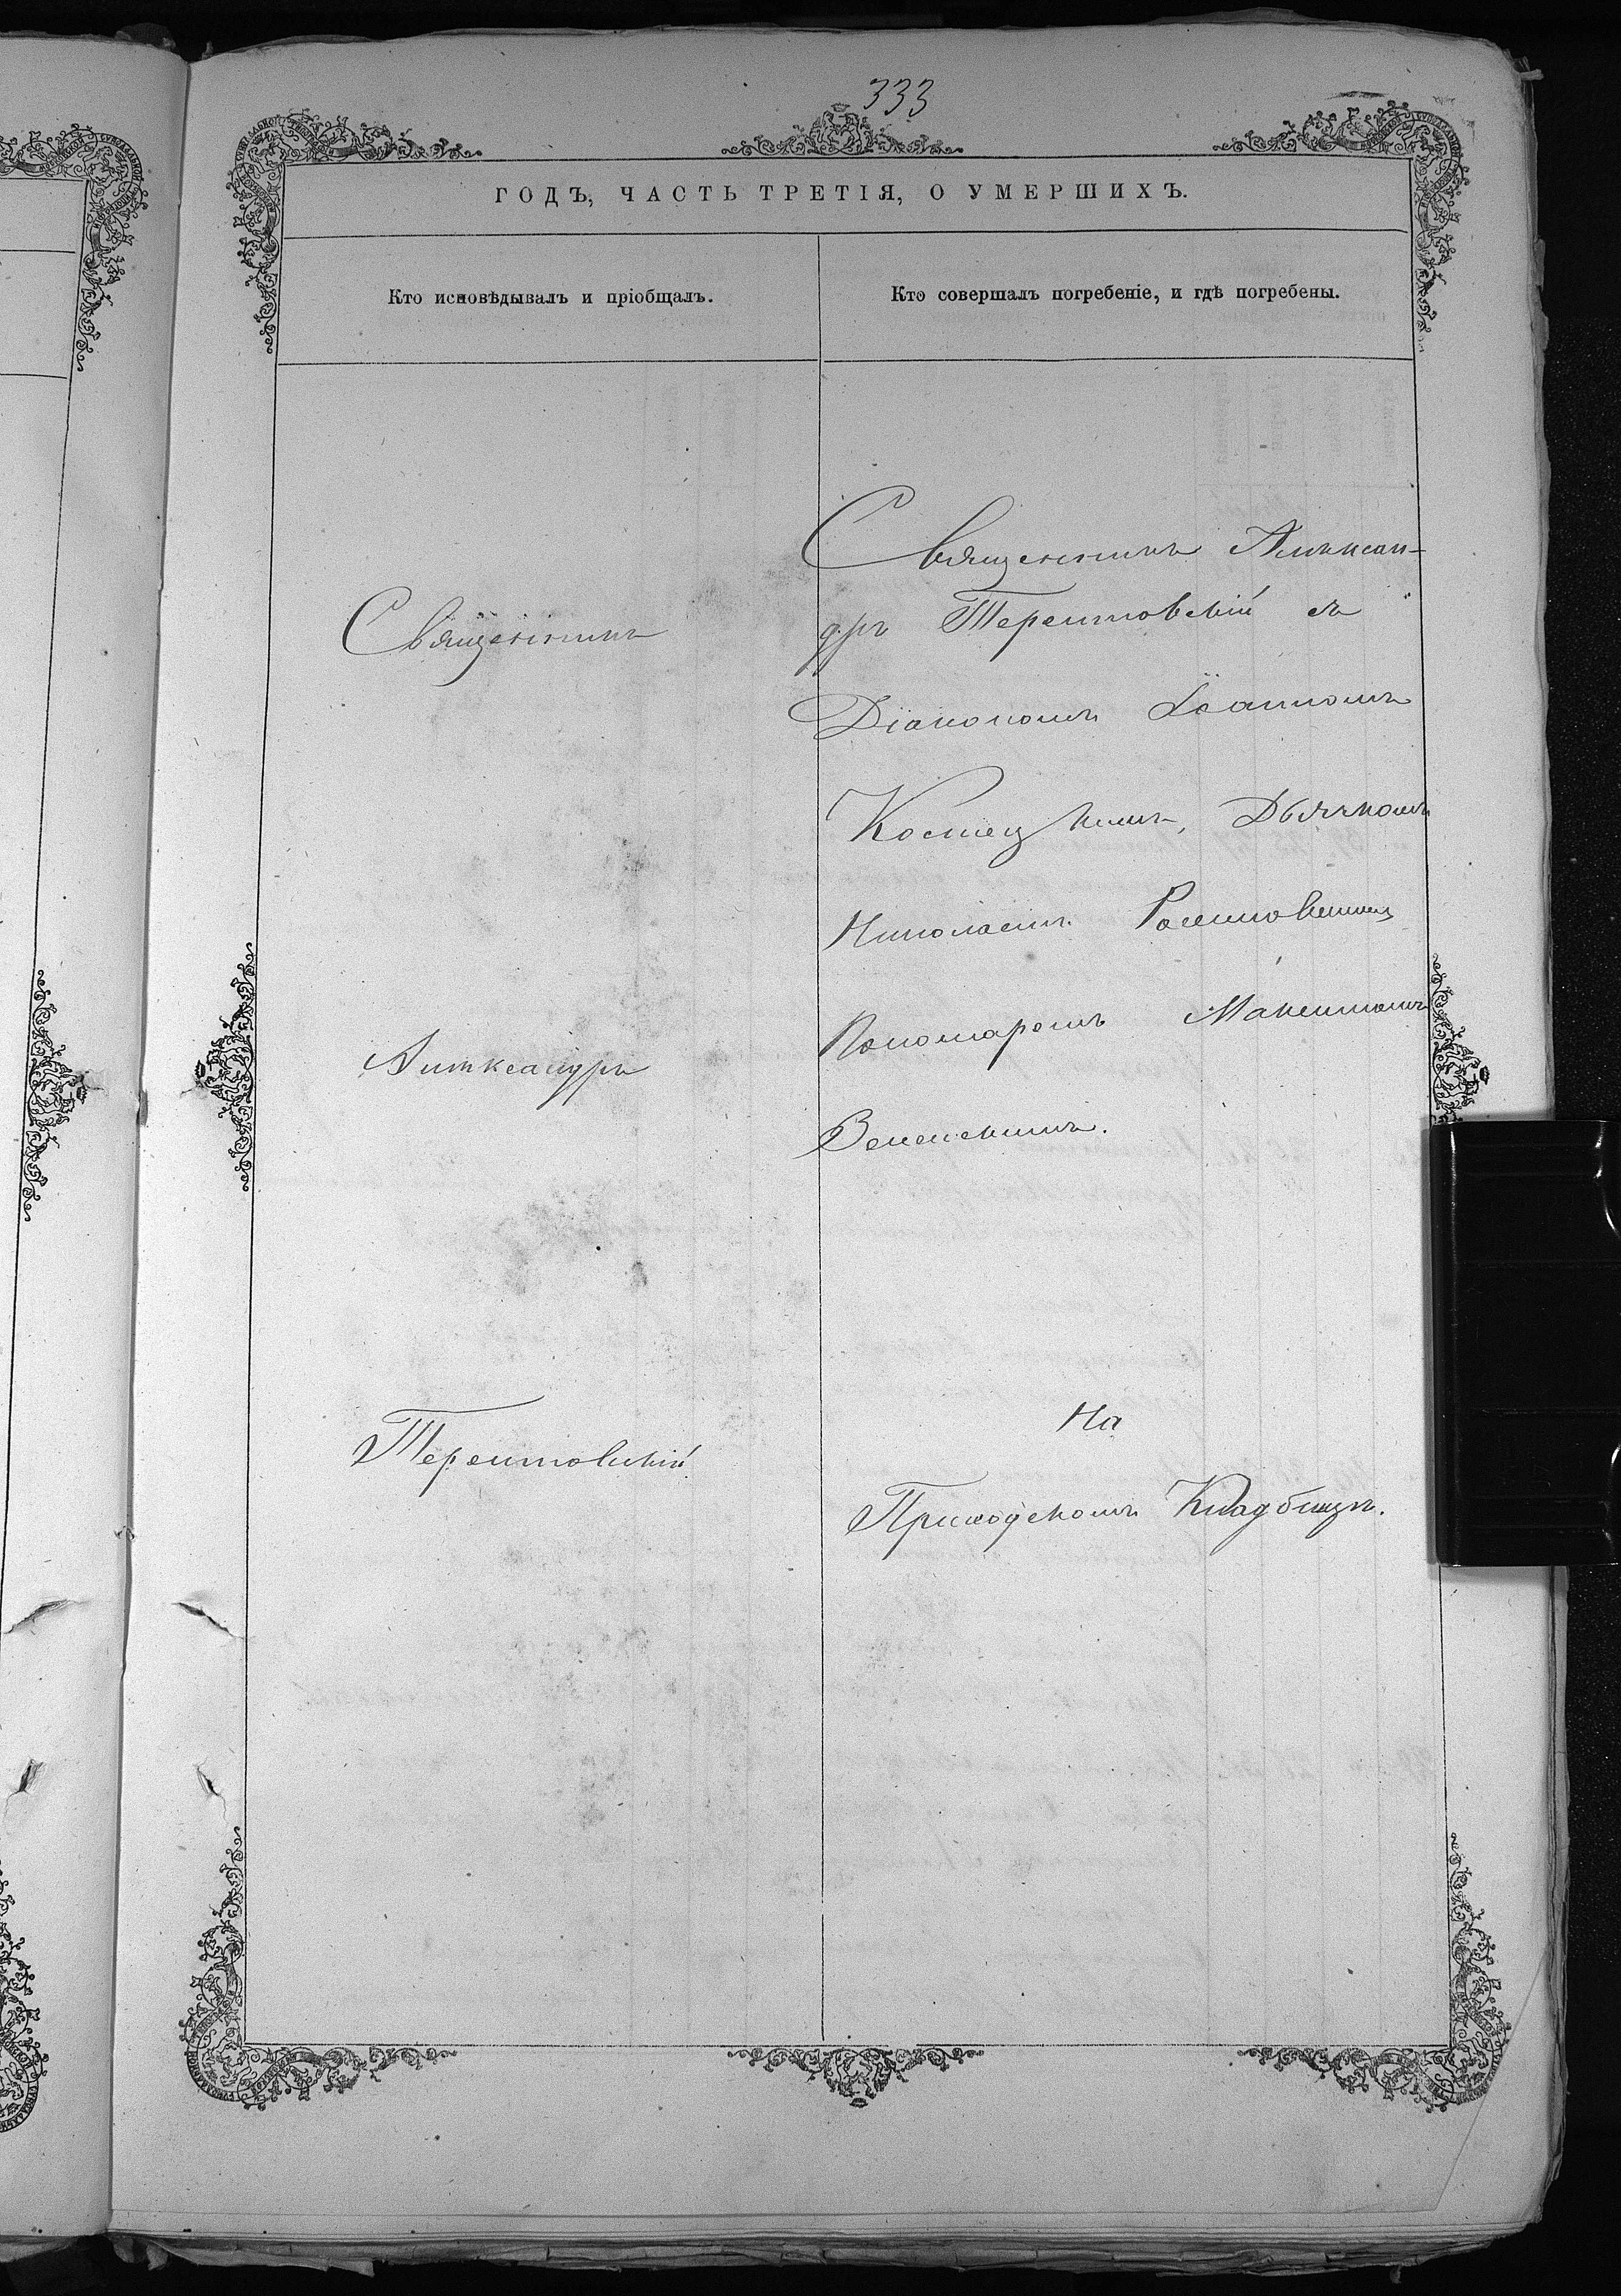 333
ГОДЪ, ЧАСТЬ ТРЕТІЯ, О УМЕРШИХЪ.
Кто исповѣдывалъ и пріобщалъ.
Кто совершалъ погребеніе, и гдѣ погребены.
Священникъ
Александръ
Терентовскій
Священникъ Алексан-
дръ Терентовскій съ
Діакономъ Іоанномъ
Костецкимъ, Дьячкомъ
Николаемъ
Пономаромъ Максимомъ
На
Приходскомъ Кладбищѣ.